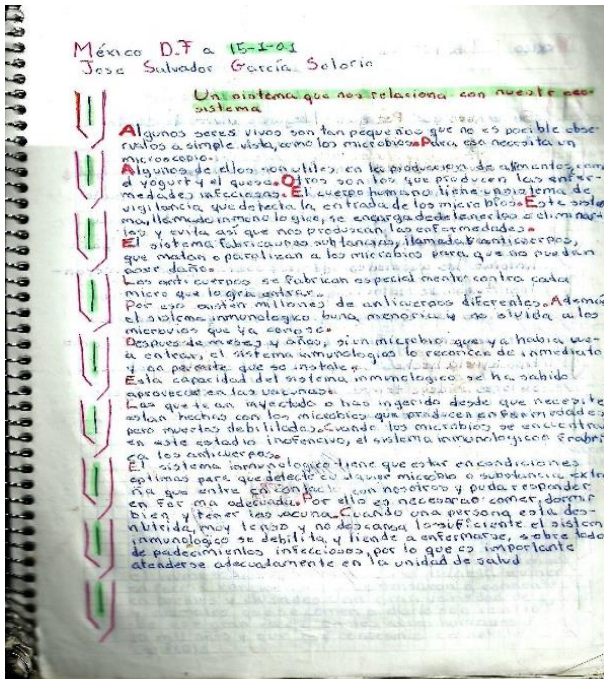 México D.F a 15-1-01
Jose Salvador García Solorio
Un sistema que nos relaciona con nuestr eco-
sistema
Algunos seres vivos son tan pequeños que no es posible obse
rvalos a simple vista, como los microbios. Para eso necesita un
microscopio.
Algunos de ellos son utiles en la produccion de alimentos, com
el yogurt y el queso. Otros son los que producen las enfer-
medades infecciosas. El cuerpo humano tiene un sistema de
vigilancia que detecta la entrada de los microbios. Este siste
ma, llamado inmeno logico, se encarga de detenerlos o eliminar
los y evita así que nos produscan las enfermedades.
El sistema fabrica unas substancias, llamadas anticuerpos,
que matan o paralizan a los microbios para que no puedan
aser daño.
Los anti cuerpos se fabrican especial mente contra cada
micro que logra entrar.
Por eso existen millones de anticuerpos diferentes. Ademas
el sistema inmunologico buna memoria y no olvida a los
microvios que ya conose.
Despues de meses y años, si un microbio que ya habia vue-
a entrar, el sistema inmunologico lo reconoce de inmediato
y no permite que se instale.
Esta capacidad del sistema inmunologico se ha sabido
aprovecar en las vacunas.
Las que te an inyectado o ha ingerido desde que necesite
estan hechas con los microbios que producen enfermedades
pero muertos debilitados. Cuando los microbios se encuentran
en este estadio inofencivo, el sistema inmunologico frabri
ca los anticuerpos.
El sistema inmunologico tiene que estar en condiciones
optimas para que detecte cualquier microbio o substancia extra
ña que entre en contacto con nosotros y pueda responder
en for ma adecuada. Por ello es necesario comer, dormir
bien y tener las vacuna. Cuando una persona esta des-
nutrida, muy tenso y no descansa lo suficiente el sistem
inmunologico se debilita y tiende a enfermarse, sobre todo
de padecimientos infecciosos, por lo que es importante
atenderse adecuadamente en la unidad de salud